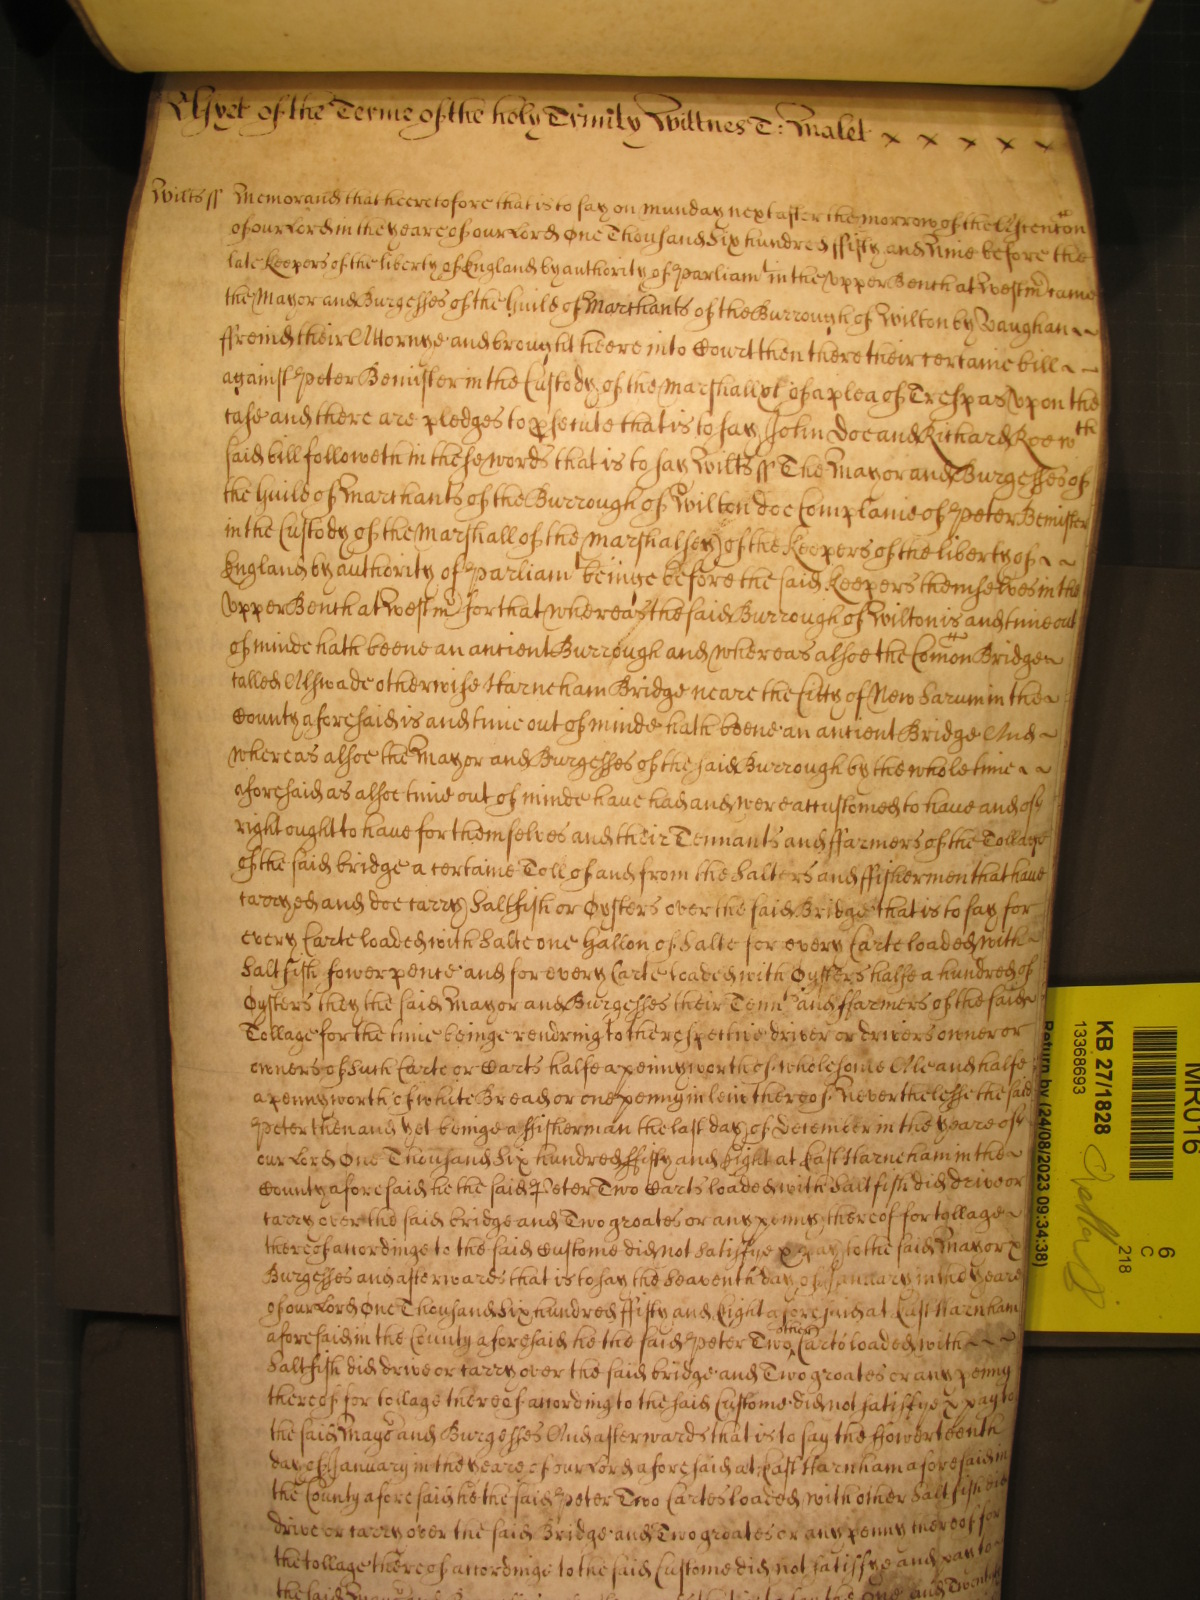 As yet of the Terme of the holy Trinity Wittnes T: Malet x x x x x
Wilts ss Memorand that heeretofore that is to say on munday next after the morrow of the Ascention
of our Lord in the yeare of our Lord One Thousand Six hundred ffifty and Nine before the
late Keepers of the liberty of England by authority of Parliamt in the upper Bench at Westm came
the Mayor and Burgesses of the Guild of Marchants of the Burrough of Wilton by Vaughan
ffreind their Attornye and brought heere into Court then there their certaine bill
against Peter Bemister in the Custody of the marshall &c of a plea of Trespas upon the
case and there are pledges to psecute that is to say John Doe and Richard Roe wth
said bill followeth in these words that is to say Wilts ss The Mayor and Burgesses of
the Guild of Marchants of the Burrough of Wilton doe Complaine of Peter Bemister
in the Custody of the Marshall of the Marshalsey of the Keepers of the liberty of
England by authority of Parliamt beinge before the said Keepers themselves in the
upper Bench at Westm for that whereas the said Burrough of Wilton is and time out
of minde hath beene an antient Burrough and whereas alsoe the Comon Bridge
called Aylswade otherwise Harneham Bridge neare the Citty of New Sarum in the
County aforesaid is and time out of minde hath beene an antient Bridge And
whereas alsoe the Mayor and Burgesses of the said Burrough by the whole time
aforesaid as alsoe time out of minde have had and were accustomed to have and of
right ought to have for themselves and their Tennants and ffarmers of the Tollage
of the said bridge a certaine Toll of and from the Salters and ffishermen that have
carryed and doe carry Saltfish or Oysters over the said Bridge that is to say for
every Carte loaded with Salte one Gallon of Salte for every Carte loaded with
Salt fish fower pence and for every Carte loaded with Oysters halfe a hundred of
Oysters they the said Mayor and Burgesses their Tennts and ffarmers of the said
Tollage for the time beinge rendring to the respective driver or drivers owner or
owners of Such Carte or Carts halfe a pennyworth of wholesome Ale and halfe
a pennyworth of white Bread or one penny in leiw thereof Neverthelesse the said
Peter then and yet beinge a ffisherman the last day of December in the yeare of
our Lord One Thousand Six hundred ffifty and Eight at East Harneham in the
County aforesaid he the said Peter Two Carts loaded with Salt fish did drive or
carry over the said bridge and Two groates or any penny thereof for tollage
thereof accordinge to the said Custome did not satisfye & pay to the said Mayor &
Burgesses and afterwards that is to say the Seaventh day of January in the yeare
of our Lord One Thousand Six hundred ffifty and Eight aforesaid at East Harnham
aforesaid in the County aforesaid he the said Peter Two other Carts loaded with
Saltfish did drive or carry over the said bridge and Two groates or any penny
thereof for tollage thereof according to the said Custome did not satisfye & pay to
the said Mayor and Burgesses And afterwards that is to say the ffowerteenth
day of January in the yeare of our Lord aforesaid at East Harnham aforesaid in
the County aforesaid he the said Peter Two Cartes loaded with other Salt fish did
drive or carry over the said Bridge and Two groates or any penny thereof for
the tollage thereof accordinge to the said Custome did not satisfye and pay to
the said and Twenty
MR016
KB 27/1828
13368693
6
C
218
Return by (24/08/2023 09:34:38)